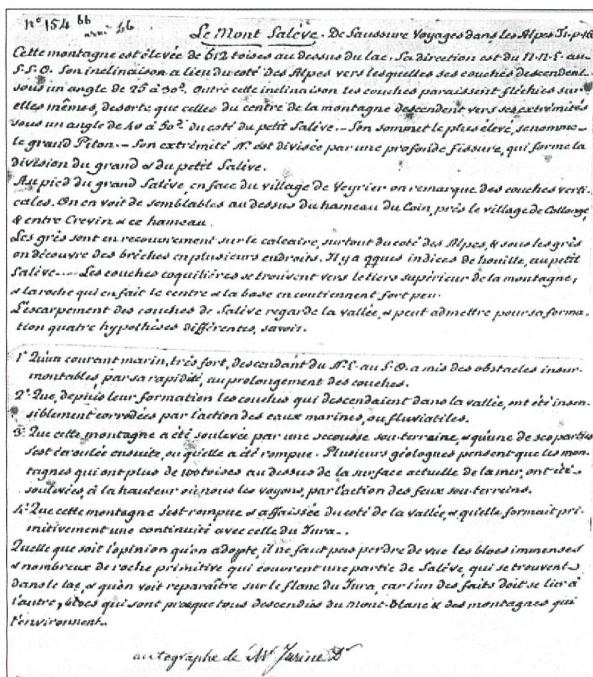 n° 154 bb
Le Mont Salève. De Saussure Voyages dans les Alpes T.1. p.16
Cette montagne est élevée de 512 toises au dessus du lac. Sa direction est du N.N.E. au
S.S.O. Son inclinaison a lieu du coté des Alpes vers lesquelles ses couches descendent
sous un angle de 25 à 30°. Outre cette inclinaison les couches paraissent fléchies sur
elles mêmes, desorte que celles du centre de la montagne descendent vers ses extrémités
sous un angle de 40 à 50°. du coté du petit Salève. — Son sommet le plus élevé, se nomme
le grand Piton. — Son extrémité N. est divisée par une profonde fissure, qui forme la
division du grand & du petit Salève.
Au pied du grand Salève, en face du village de Veyrier on remarque des couches verti-
cales. On en voit de semblables au dessus du hameau du Coin, près le village de Collonge,
& entre Crevin & ce hameau.
Les grès sont en recouvrement sur le calcaire, surtout du coté des Alpes, & sous les grès
on découvre des brêches en plusieurs endroits. Il y a qques indices de houille, au petit
Salève. — Les couches coquilières se trouvent vers le tiers supérieur de la montagne,
& la roche qui en fait le centre & la base en contiennent fort peu.
L'escarpement des couches de Salève regarde la vallée, & peut admettre pour sa forma-
tion quatre hypothèses différentes, savoir.
1° Qu'un courant marin, très fort, descendant du N.E. au S.O. a mis des obstacles insur-
montables, par sa rapidité, au prolongement des couches.
2° Que, depuis leur formation les couches qui descendaient dans la vallée, ont été insen-
siblement corrodées par l'action des eaux marines, ou fluviatiles.
3° Que cette montagne a été soulevée par une secousse sou-terraine, & qu'une de ses parties
s'est écroulée ensuite, ou qu'elle a été rompue. Plusieurs géologues pensent que les mon-
tagnes qui ont plus de 100 toises au dessus de la surface actuelle de la mer, ont été
soulevées, à la hauteur où nous les voyons, par l'action des feux sou-terreins.
4° Que cette montagne s'est rompue & affaissée du coté de la vallée, & qu'elle formait pri-
mitivement une continuité avec celle du Jura. —
Quelle que soit l'opinion qu'on adopte, il ne faut pas perdre de vue les blocs immenses
& nombreux de roche primitive qui couvrent une partie de Salève, qui se trouvent
dans le lac, & qu'on voit reparaître sur le flanc du Jura, car l'un des faits doit se lier à
l'autre, blocs qui sont presque tous descendus du Mont-blanc & des montagnes qui
l'environnent.
autographe de Mr Jurine Dr